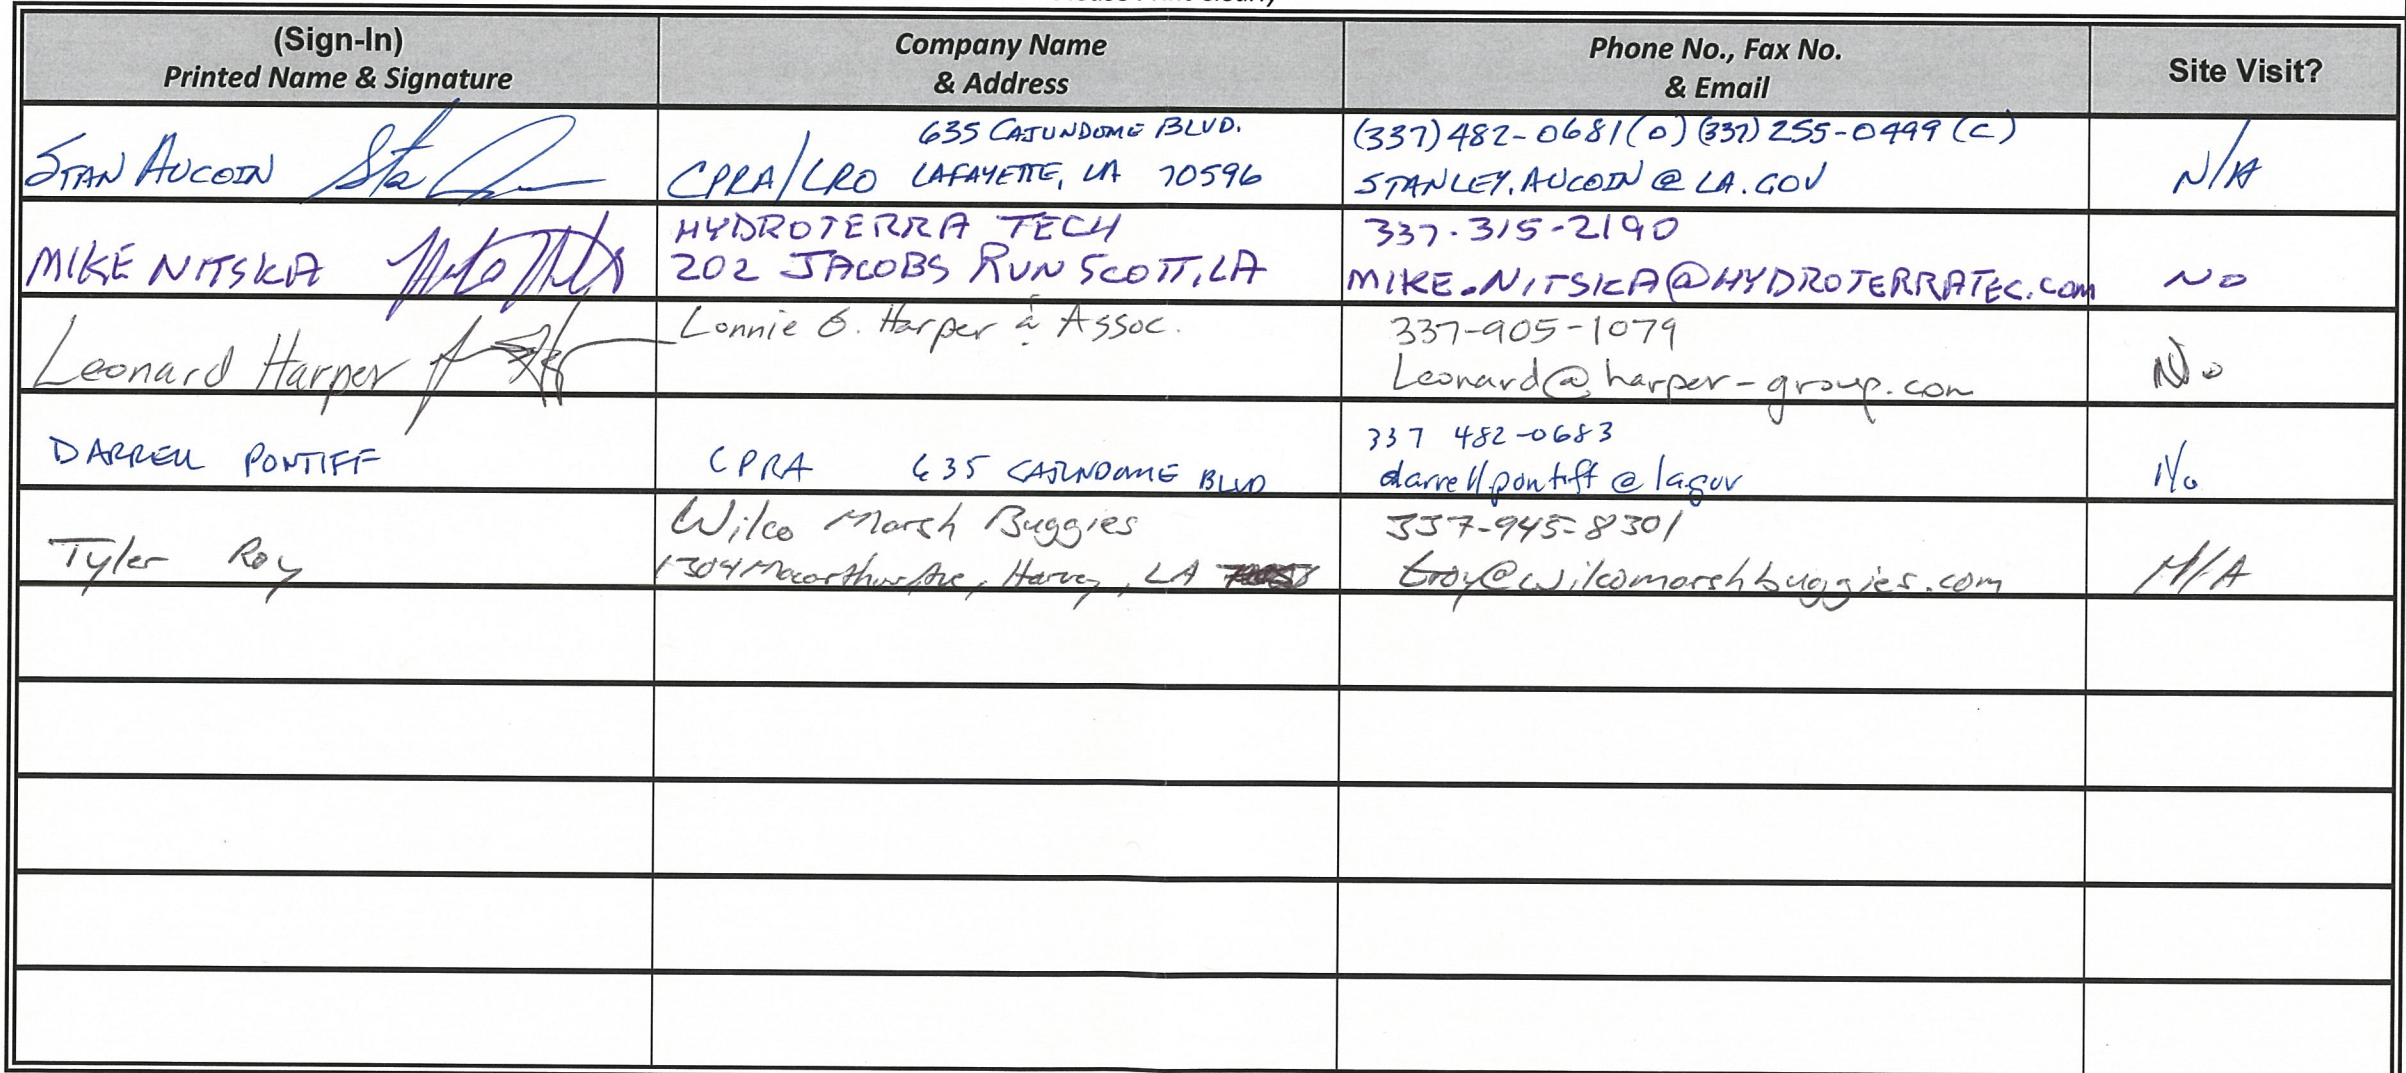 (Sign-In)
Printed Name & Signature
Company Name
& Address
Phone No., Fax No.
& Email
Site Visit?
STAN AUCOIN
635 CAJUNDOME BLVD.
CPRA/LRO LAFAYETTE, LA 70596
(337) 482-0681 (o) (337) 255-0449 (c)
STANLEY.AUCOIN@LA.GOV
N/A
MIKE NITSKA
HYDROTERRA TECH
202 JACOBS RUN SCOTT, LA
337-315-2190
MIKE.NITSKA@HYDROTERRATEC.COM
NO
Leonard Harper
Lonnie G. Harper & Assoc.
337-905-1079
Leonard@harper-group.com
No
DARRELL PONTIFF
CPRA 635 CAJUNDOME BLVD
337 482-0683
darrellpontiff@la.gov
No
Tyler Roy
Wilco Marsh Buggies
1304 Macarthur Ave, Harvey, LA
337-945-8301
troy@wilcomarshbuggies.com
N/A